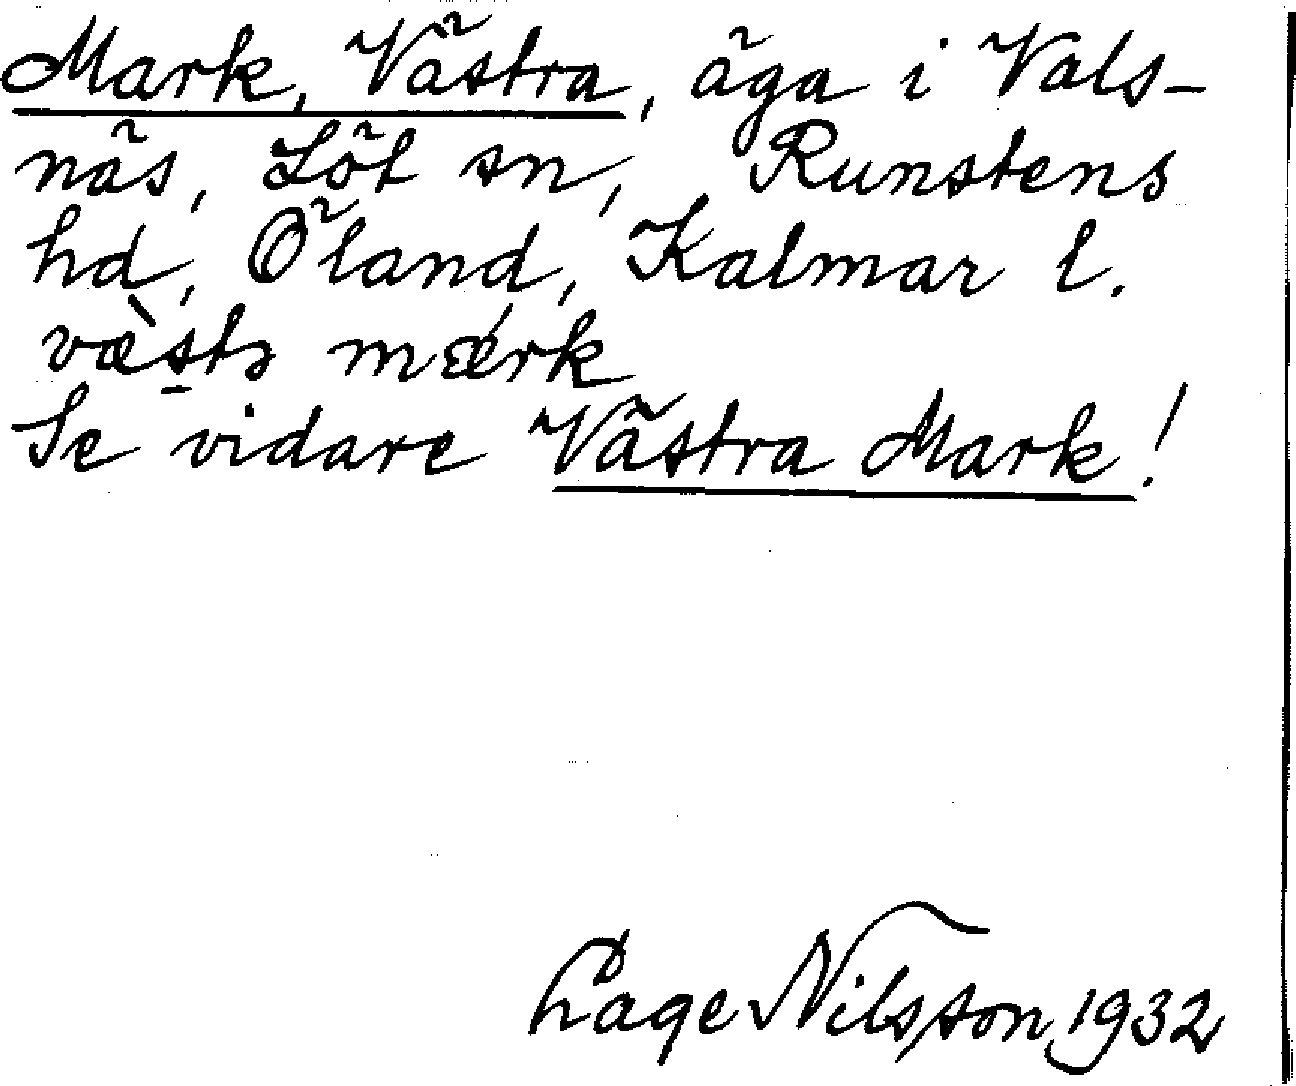 Mark, Västra, äga i Vals-
näs, Löt sn, Runstens
hd, Öland, Kalmar l.
væ̀s̱tə mǽrk
Se vidare Västra Mark!
Låge Nilsson 1932